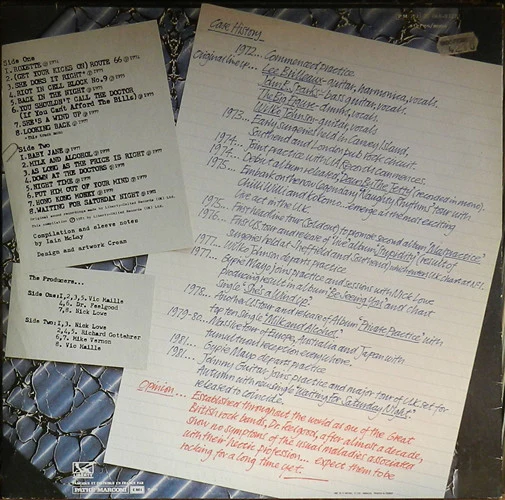 Side One
1. ROXETTE ℗ 1975
2. (GET YOUR KICKS ON) ROUTE 66 ℗
3. SHE DOES IT RIGHT* ℗
4. RIOT IN CELL BLOCK No.9 ℗
5. BACK IN THE NIGHT ℗ 1975
6. YOU SHOULDN'T CALL THE DOCTOR
(If You Can't Afford The Bills) ℗
7. SHE'S A WIND UP ℗ 1977
8. LOOKING BACK ℗ 1977
Side Two
1. BABY JANE ℗ 1977
2. MILK AND ALCOHOL ℗
3. AS LONG AS THE PRICE IS RIGHT ℗
4. DOWN AT THE DOCTORS ℗
5. NIGHT TIME ℗
6. PUT HIM OUT OF YOUR MIND ℗
7. HONG KONG MONEY ℗
8. WAITING FOR SATURDAY NIGHT ℗ 1981
Compilation and sleeve notes
by Iain McLay
Design and artwork Cream
The Producers...
Side One:1,2,3,5. Vic Maille
4,6. Dr. Feelgood
7,8. Nick Lowe
Side Two:1,3. Nick Lowe
2,4,5. Richard Gottehrer
6,7. Mike Vernon
8. Vic Maille
Case History
1972... Commenced practice.
Original line up... Lee Brilleaux-guitar, harmonica, vocals.
John B. Sparks-bass guitar, vocals.
The Big Figure-drums, vocals.
Wilko Johnson-guitar, vocals.
1973... Early surgeries held in Canvey Island,
Southend and London pub rock circuit.
1974... Joint practice with UA Records commences.
1974... Debut album released "Down By The Jetty" (recorded in mono).
1975... Embark on the now legendary 'Naughty Rhythms' tour with
Chilli Willi and Kokomo. Emerge as the most exciting
live act in the U.K.
1975... First headline tour (Sold out) to promote second album "Malpractice"
1976... First U.S. tour and release of 'live' album "Stupidity" (result of
surgeries held at Sheffield and Southend) which enters U.K. chart at No.1.
1977... Wilko Johnson departs practice.
1977... Gypie Mayo joins practice and sessions with Nick Lowe
producing result in album "Be Seeing You" and chart
single "She's a Wind Up".
1978... Another U.S. tour and release of Album "Private Practice" with
top ten single "Milk and Alcohol".
1979-80... Massive tour of Europe, Australia and Japan with
tumultuous reception everywhere.
1981... Gypie Mayo departs practice.
1981... Johnny Guitar joins practice and major tour of U.K. set for
Autumn with new single "Waiting for Saturday Night"
released to coincide.
Opinion... Established throughout the world as one of the Great
British rock bands, Dr. Feelgood, after almost a decade,
show no symptoms of the usual maladies associated
with their hectic profession... expect them to be
rocking for a long time yet.
LIBERTY
FABRIQUÉ ET DISTRIBUÉ EN FRANCE PAR
PATHE MARCONI EMI